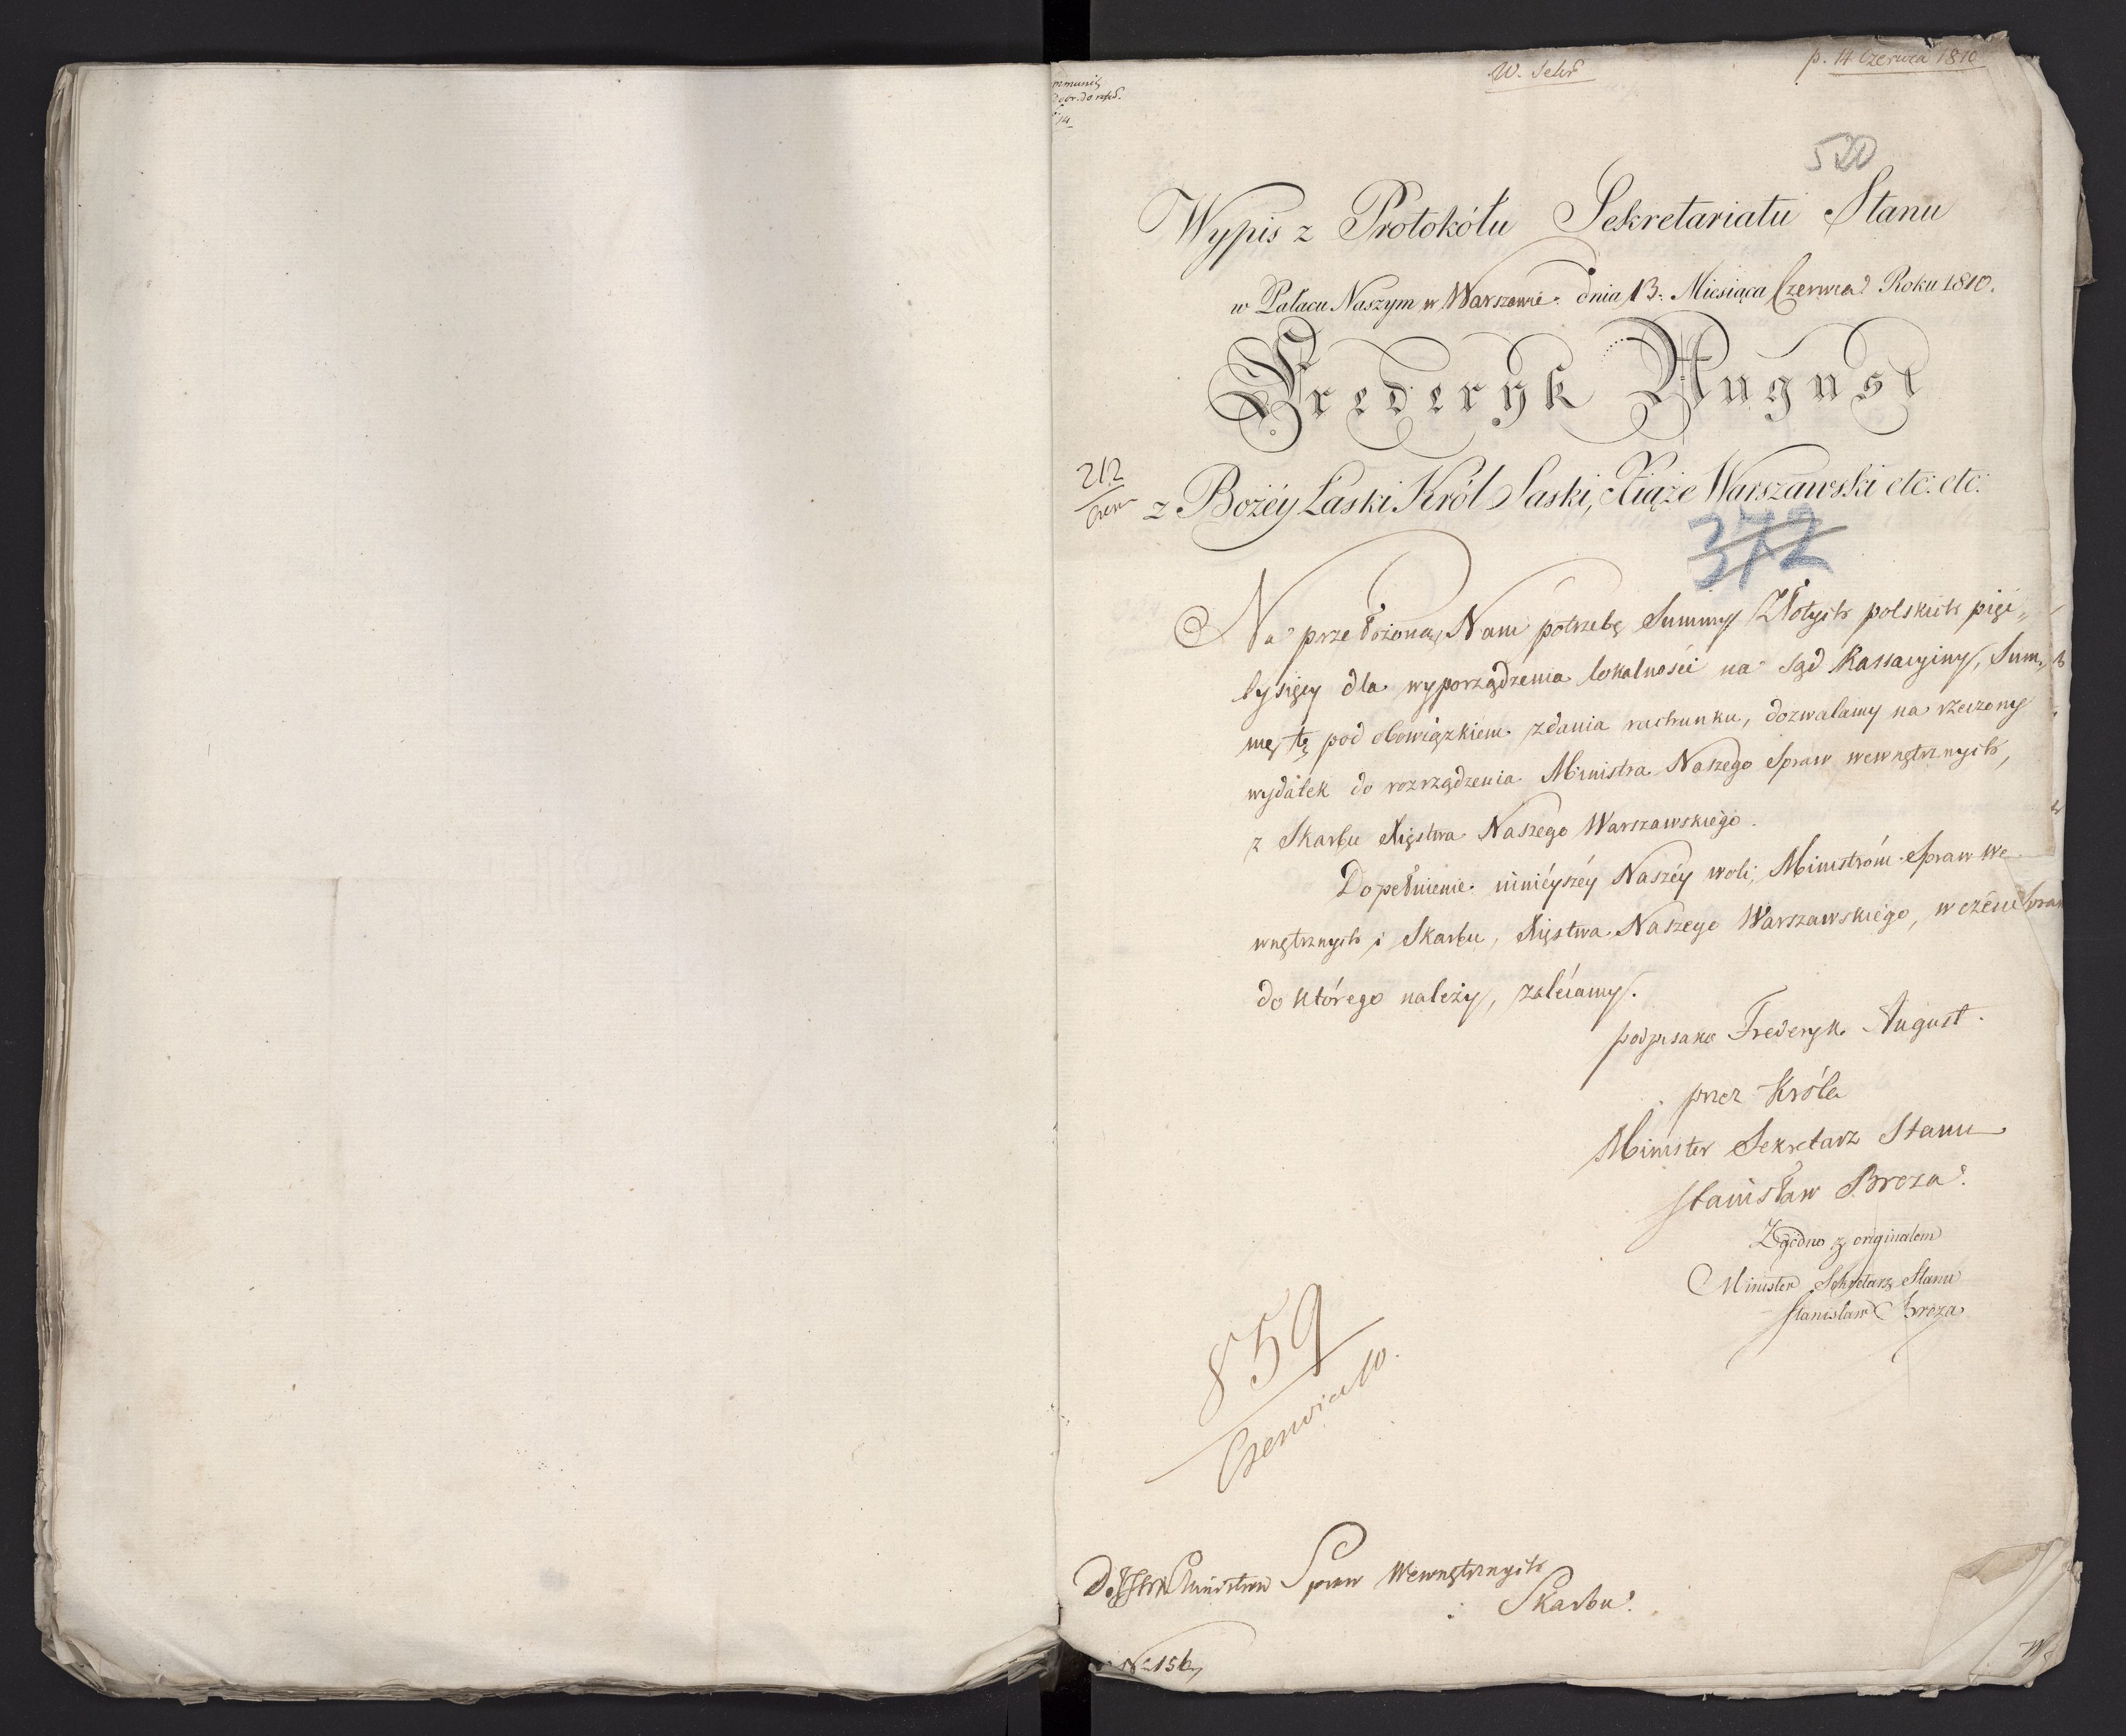 p. 14 Czerwca 1810
520
Wypis z Protokółu Sekretariatu Stanu
w Pałacu Naszym w Warszawie dnia 13. Miesiąca Czerwca Roku 1810.
Fryderyk August
212
Czerw
z Bożéy Łaski Król Saski, Xiąże Warszawski etc: etc:
372
Na przełożoną Nam potrzebę Summy Złotych polskich pięć
tysięcy dla wyporządzenia lokalności na Sąd Kassacyiny, Sum„
mę tę pod obowiązkiem zdania rachunku, dozwalamy na rzeczony
wydatek do rozrządzenia Ministra Naszego Spraw wewnętrznych,
z Skarbu Xięstwa Naszego Warszawskiego.
Dopełnienie ninieyszéy Naszéy woli, Ministróm Spraw We
wnętrznych i Skarbu, Xięstwa Naszego Warszawskiego, w czém
do którego należy, zalécamy.
podpisano Frederyk August.
przez Króla
Minister Sekretarz Stanu
Stanisław Breza
Zgodno z originałem
Minister Sekretarz Stanu
Stanisław Breza
859
Czerwca 10.
Ministrów Spraw Wewnętrznych
i Skarbu.